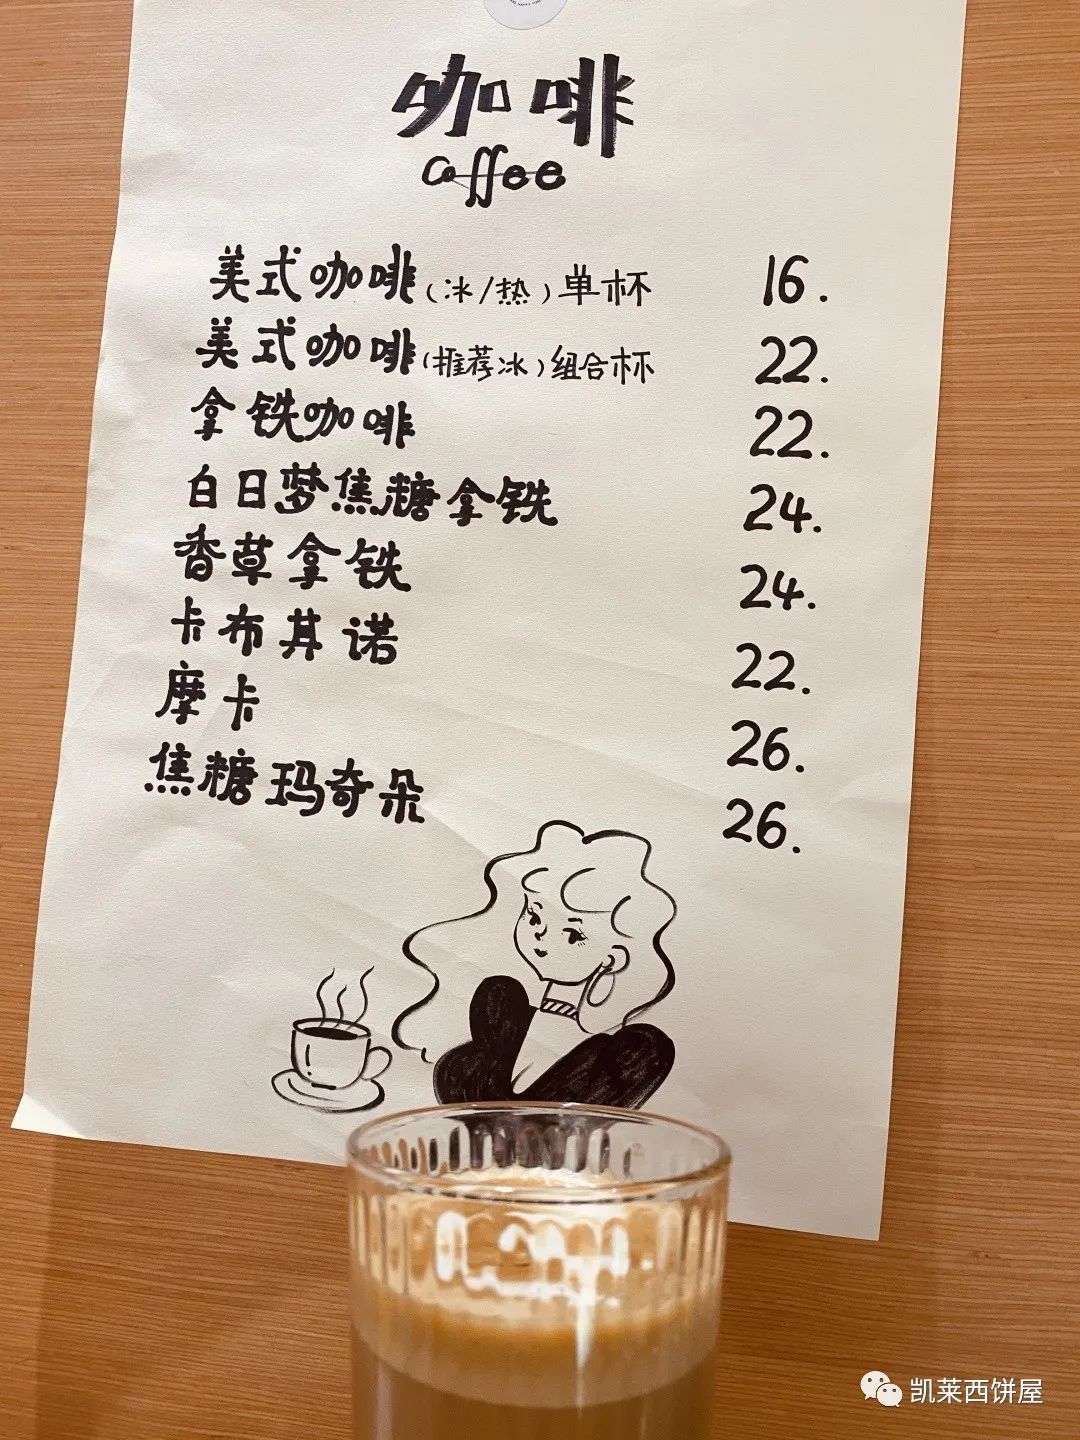 咖啡
coffee
美式咖啡(冰/热)单杯 16.
美式咖啡(推荐冰)组合杯 22.
拿铁咖啡 22.
白日梦焦糖拿铁 24.
香草拿铁 24.
卡布其诺 22.
摩卡 26.
焦糖玛奇朵 26.
凯莱西饼屋